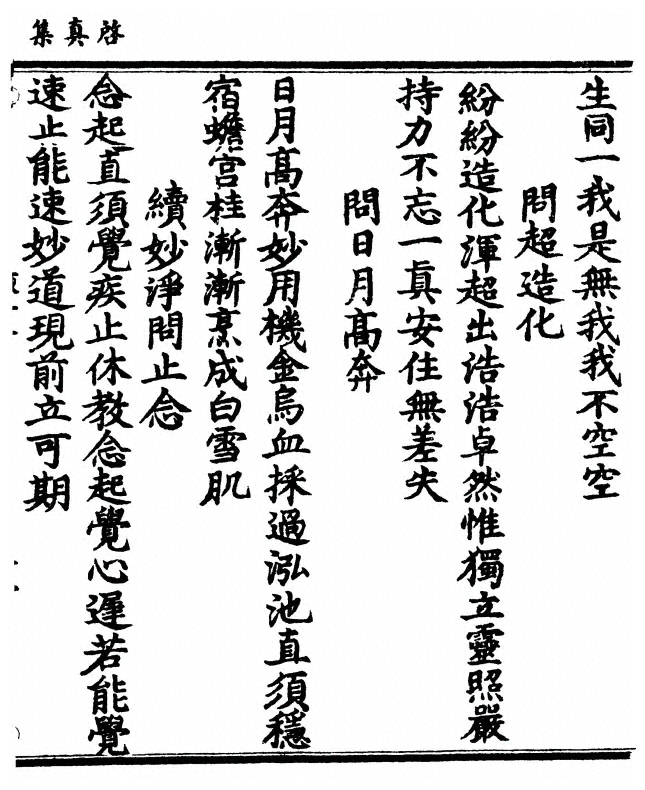 啓真集
生同一我是無我我不空空
問超造化
紛紛造化渾超出浩浩卓然惟獨立靈照嚴
持力不忘一眞安住無差失
問日月髙奔
日月髙奔妙用機金烏血採過泓池直須穩
宿蟾宫桂漸漸烹成白雪肌
續妙淨問止念
念起直須覺疾止休教念起覺心遲若能覺
速止能速妙道現前立可期